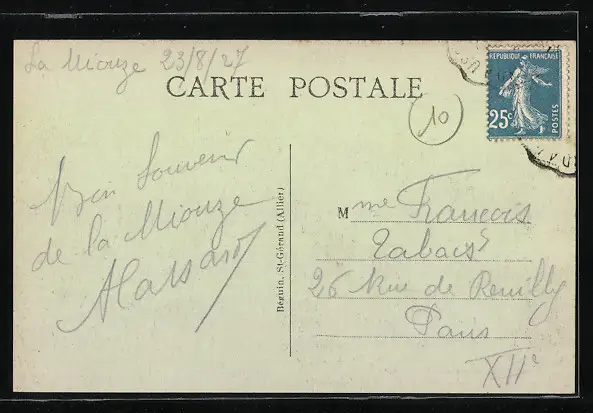 La Miouze 23/8/27
CARTE POSTALE
10
REPUBLIQUE FRANÇAISE
25c
POSTES
Bon Souvenir
de la Miouze
Béguin, St-Gérand (Allier)
Mme François
Tabacs
26 Rue de Reuilly
Paris
XIIe